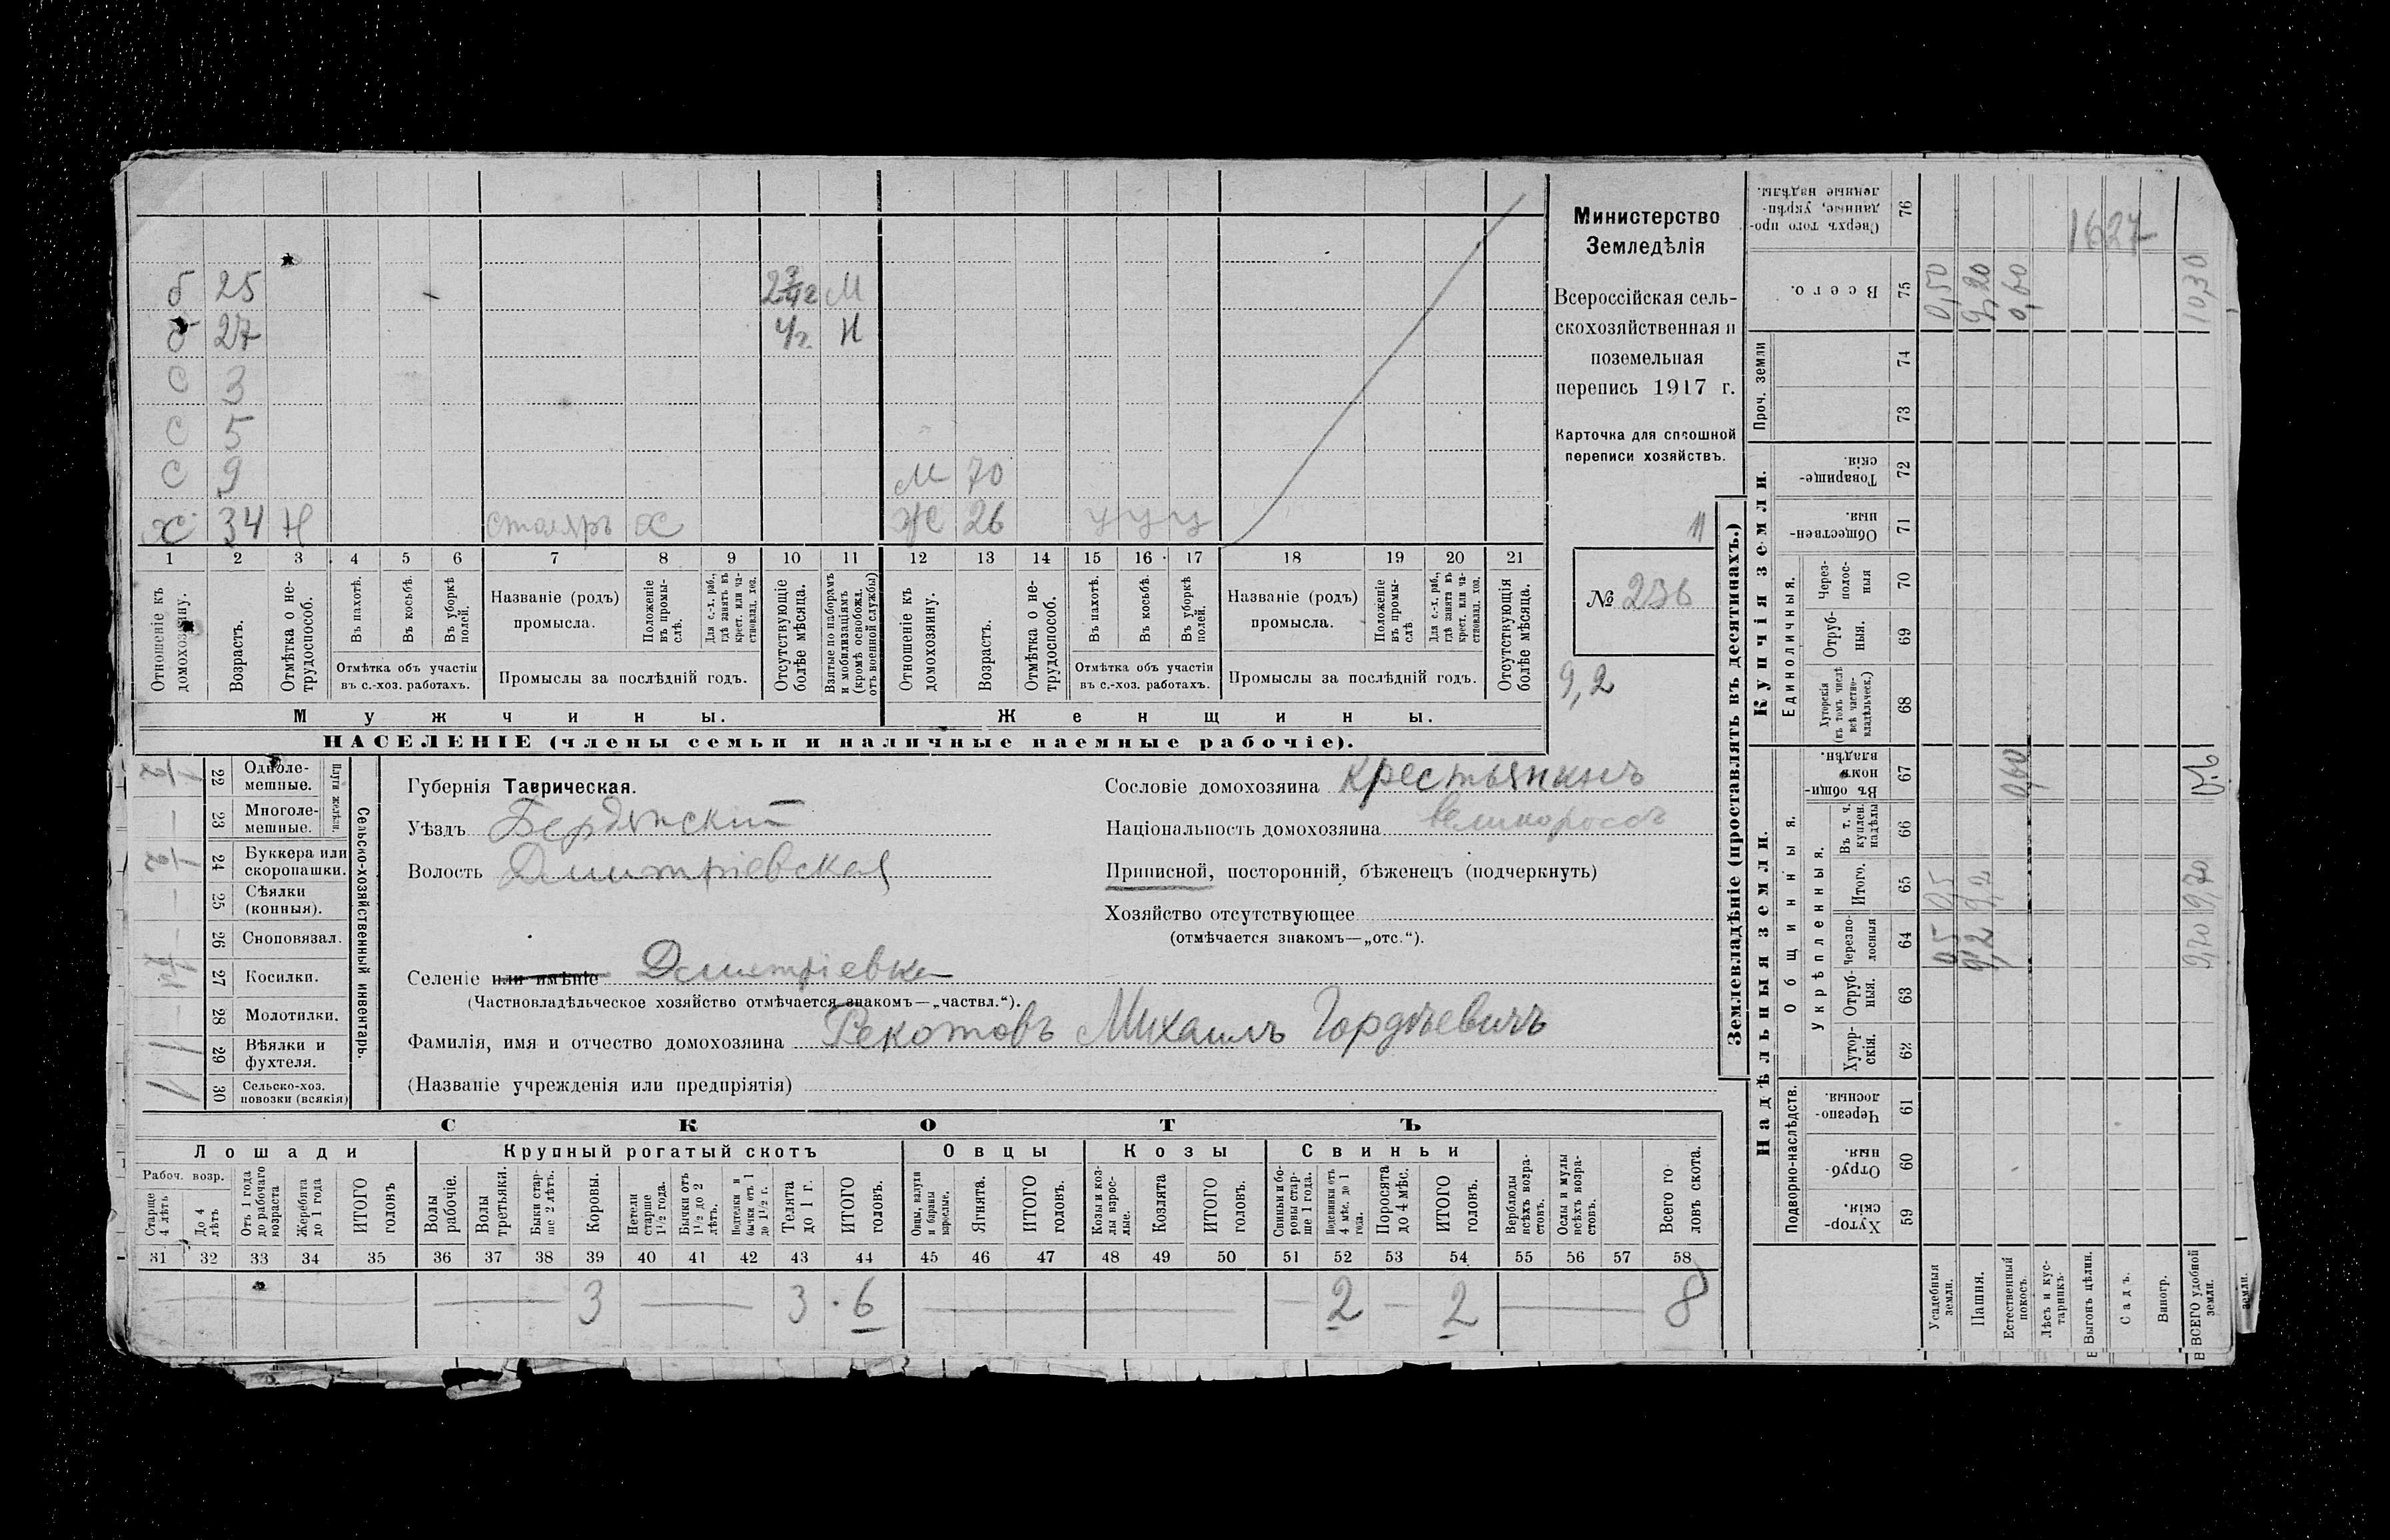 б 25 2 3/4 г М
б 27 4/г. Н
С 3
С 5
С 9 М 70
Х 34 Н столяръ х Ж 26 у у у
1 2 3 4 5 6 7 8 9 10 11 12 13 14 15 16 17 18 19 20 21
Отношеніе къ домохозяину.
Возрастъ.
Отмѣтка о не-трудоспособ.
Въ пахотѣ.
Въ косьбѣ.
Въ уборкѣ полей.
Отмѣтка объ участіи въ с.-хоз. работахъ.
Названіе (родъ) промысла.
Положеніе въ промы-слѣ.
Для с.-х. раб., гдѣ занятъ въ крест. или ча-стновлад. хоз.
Промыслы за послѣдній годъ.
Отсутствующіе болѣе мѣсяца.
Взятые по наборамъ и мобилизаціямъ (кромѣ освобожд. отъ военной службы)
Отношеніе къ домохозяину.
Возрастъ.
Отмѣтка о не-трудоспособ.
Въ пахотѣ.
Въ косьбѣ.
Въ уборкѣ полей.
Отмѣтка объ участіи въ с.-хоз. работахъ.
Названіе (родъ) промысла.
Положеніе въ промы-слѣ
Для с.-х. раб., гдѣ занята въ крест. или ча-стновлад. хоз.
Промыслы за послѣдній годъ.
Отсутствующія болѣе мѣсяца.
Мужчины.
Женщины.
НАСЕЛЕНІЕ (члены семьи и наличные наемные рабочіе).
Министерство
Земледѣлія
Всероссійская сель-
скохозяйственная и
поземельная
перепись 1917 г.
Карточка для сплошной
переписи хозяйствъ.
11
№ 236
9,2
Сельско-хозяйственный инвентарь.
Плуги желѣзн.
Одноле-мешные. 22 1/2
Многоле-мешные. 23 —
Буккера или скоропашки. 24 1/2
Сѣялки (конныя). 25 —
Сноповязал. 26 —
Косилки. 27
Молотилки. 28 —
Вѣялки и фухтеля. 29 1
Сельско-хоз. повозки (всякія) 30 1
Губернія Таврическая.
Уѣздъ Бердянскій
Волость Дмитріевская
Сословіе домохозяина крестьянинъ
Національность домохозяина великороссъ
Приписной, посторонній, бѣженецъ (подчеркнуть)
Хозяйство отсутствующее
(отмѣчается знакомъ—„отс.“).
Селеніе или имѣніе Дмитріевка
(Частновладѣльческое хозяйство отмѣчается знакомъ—„частвл.“).
Фамилія, имя и отчество домохозяина Рекотовъ Михаилъ Гордѣевичъ
(Названіе учрежденія или предпріятія)
СКОТЪ
Лошади
Крупный рогатый скотъ
Овцы
Козы
Свиньи
Рабоч. возр.
Старше 4 лѣтъ
До 4 лѣтъ
Отъ 1 года до рабочаго возраста
Жеребята до 1 года
ИТОГО головъ
Волы рабочіе.
Волы третьяки.
Быки стар-ше 2 лѣтъ.
Коровы.
Нетели старше 1 1/2 года.
Бычки отъ 1 1/2 до 2 лѣтъ.
Подтелки и бычки отъ 1 до 1 1/2 г.
Телята до 1 г.
ИТОГО головъ.
Овцы, валухи и бараны взрослые.
Ягнята.
ИТОГО головъ.
Козы и коз-лы взрос-лые.
Козлята
ИТОГО головъ.
Свиньи и бо-ровы стар-ше 1 года.
Подсвинки отъ 4 мѣс. до 1 года.
Поросята до 4 мѣс.
ИТОГО головъ.
Верблюды всѣхъ возра-стовъ.
Ослы и мулы всѣхъ возра-стовъ.
Всего го-ловъ скота.
31 32 33 34 35 36 37 38 39 40 41 42 43 44 45 46 47 48 49 50 51 52 53 54 55 56 57 58
— — 3 — 3 6 — — 2 — 2 — 8
Землевладѣніе (проставлять въ десятинахъ.)
Купчія земли.
Надѣльныя земли.
Проч. земли
Единоличныя.
Общинныя.
Укрѣпленныя.
Подворно-наслѣдств.
Сверхъ того про-данные, укрѣп-ленные надѣлы. 76
Всего. 75
74
73
Товарище-скія. 72
Обществен-ныя. 71
Через-полос-ныя 70
Отруб-ныя. 69
Хуторскія (въ томъ числѣ всѣ частно-владѣльческ.) 68
Въ общи-номъ владѣн. 67
Въ т. ч. куплен. надѣлы 66
Итого. 65
Черезпо-лосныя 64
Отруб-ныя. 63
Хутор-скія. 62
Черезпо-лосныя. 61
Отруб-ныя. 60
Хутор-скія. 59
1627
0,50
9,20
0,60
10,30
0,60
0,6
0,5 0,5
9,2 9,2
9,70 9,70
Усадебныя земли.
Пашня.
Естественный покосъ.
Лѣсъ и кус-тарникъ.
Выгонъ цѣлин.
Садъ.
Виногр.
ВСЕГО удобной земли.
земли.